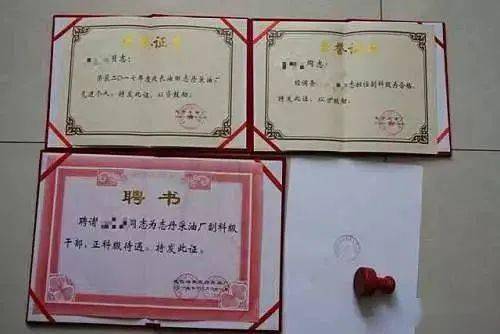 荣誉证书
同志:
荣获二〇一七年度延长油田志丹采油厂
先进个人。特发此证,以资鼓励。
荣誉证书
同志:
经调查
志担任副科级为合格。
特发此证,以资鼓励。
聘书
聘谢
同志为志丹采油厂副科级
干部,正科级待遇。特发此证。